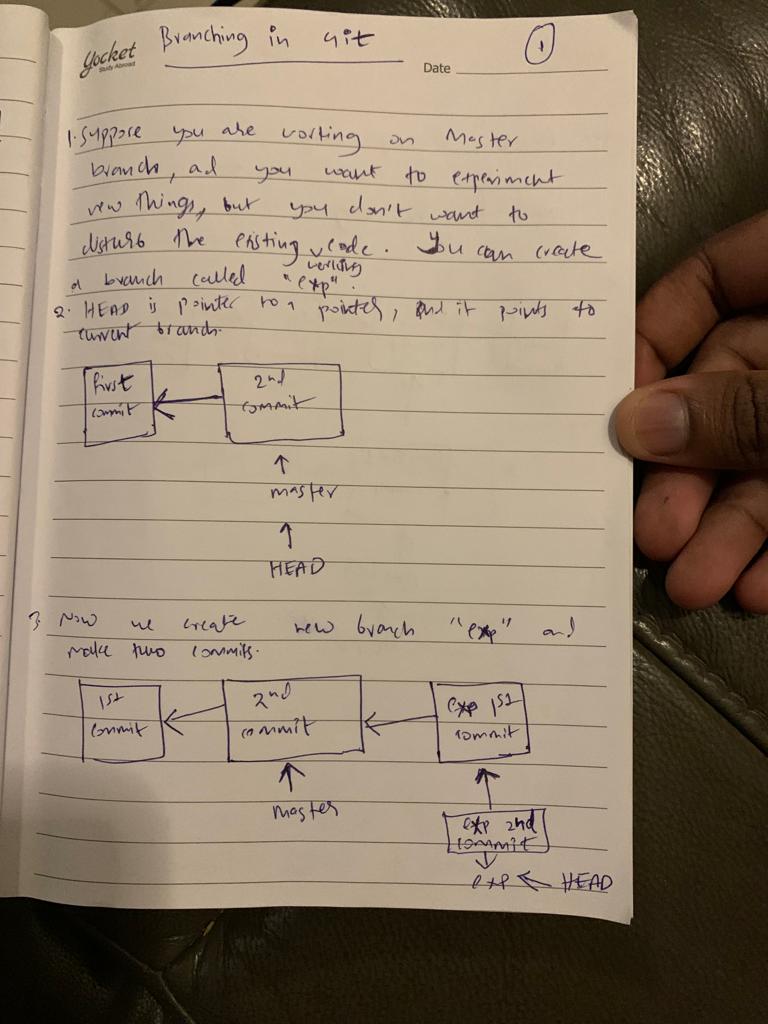 Branching in Git
1
Yocket
Study Abroad
Date
1. Suppose you are working on Master
branch, ad you want to experiment
new things, but you don't want to
disturb the existing working code. You can create
a branch called "exp".
2. HEAD is pointer to a pointer, and it points to
current branch.
first
commit
2nd
commit
master
HEAD
3. Now we create new branch "exp" and
make two commits.
1st
commit
2nd
commit
exp 1st
commit
master
exp 2nd
commit
exp HEAD